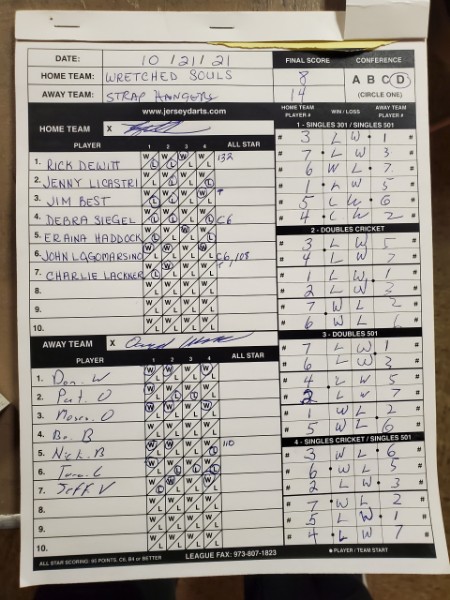 DATE: 10/21/21 FINAL SCORE CONFERENCE
HOME TEAM: WRETCHED SOULS 8 A B C D
AWAY TEAM: STRAP HANGERS 14 (CIRCLE ONE)
www.jerseydarts.com
HOME TEAM X
PLAYER 1 2 3 4 ALL STAR
1. RICK DEWITT 132
2. JENNY LICASTRI
3. JIM BEST
4. DEBRA SIEGEL C6
5. ERAINA HADDOCK
6. JOHN LAGOMARSINO C6, 108
7. CHARLIE LACKNER
8.
9.
10.
AWAY TEAM X
PLAYER 1 2 3 4 ALL STAR
1. Don. W
2. Pat. O
3.
4. Bo. B
5. Nick. B 110
6.
7. Jeff V
8.
9.
10.
ALL STAR SCORING: 95 POINTS, C6, B4 or BETTER LEAGUE FAX: 973-807-1823
HOME TEAM PLAYER # WIN / LOSS AWAY TEAM PLAYER #
1 - SINGLES 301 / SINGLES 501
# 3 L W 1 #
# 7 L W 3 #
# 6 W L 7 #
# 1 L W 5 #
# 5 L W 6 #
# 4 L W 2 #
2 - DOUBLES CRICKET
# 3 L W 5 #
# 4 L W 7 #
# 1 L W 1 #
# 2 L W 3 #
# 7 W L 2 #
# 6 W L 6 #
3 - DOUBLES 501
# 7 L W 1 #
# 6 L W 3 #
# 4 L W 5 #
# 2 L W 7 #
# 1 W L 2 #
# 5 W L 6 #
4 - SINGLES CRICKET / SINGLES 501
# 3 W L 6 #
# 6 W L 5 #
# 2 L W 3 #
# 7 W L 2 #
# 5 L W 1 #
# 4 W L 7 #
PLAYER / TEAM START